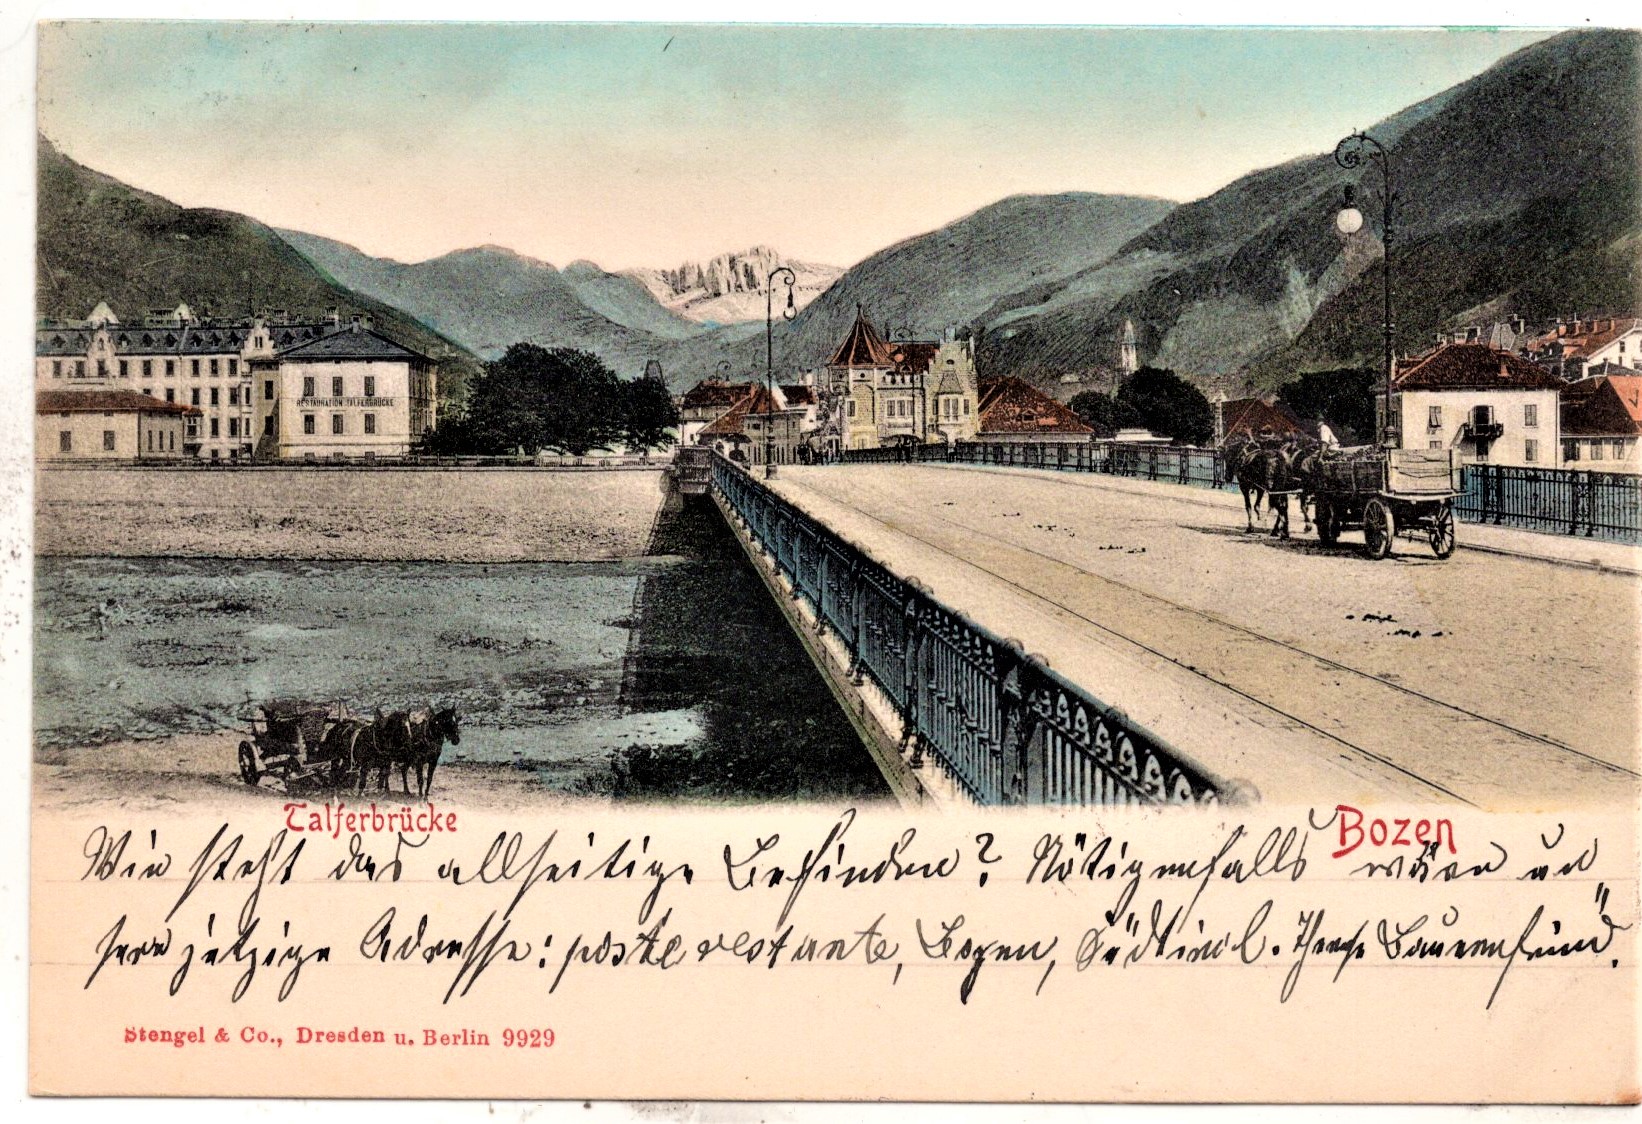 RESTAURATION TALFERBRÜCKE
Talferbrücke
Bozen
Wie steht das allseitige Befinden? Nötigenfalls wäre un„
sere jetzige Adresse: poste restante, Bozen, Südtirol.
Stengel & Co., Dresden u. Berlin 9929